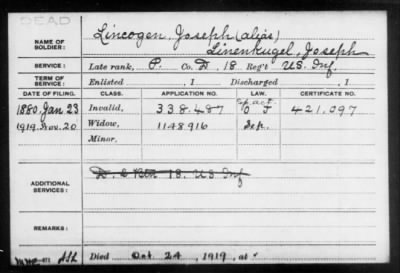 DEAD
NAME OF SOLDIER: Lincogen, Joseph (alias)
Linenkugel, Joseph
SERVICE: Late rank, P. Co. D, 18 Reg't U.S. Inf
TERM OF SERVICE: Enlisted , 1 Discharged , 1
DATE OF FILING. CLASS. APPLICATION NO. LAW. CERTIFICATE NO.
1880. Jan 23 Invalid, 338.487 421.097
1919. Nov. 20 Widow, 1148916 Sep.
Minor,
ADDITIONAL SERVICES: 18. U.S. Inf
REMARKS:
Died Oct. 24, 1919, at